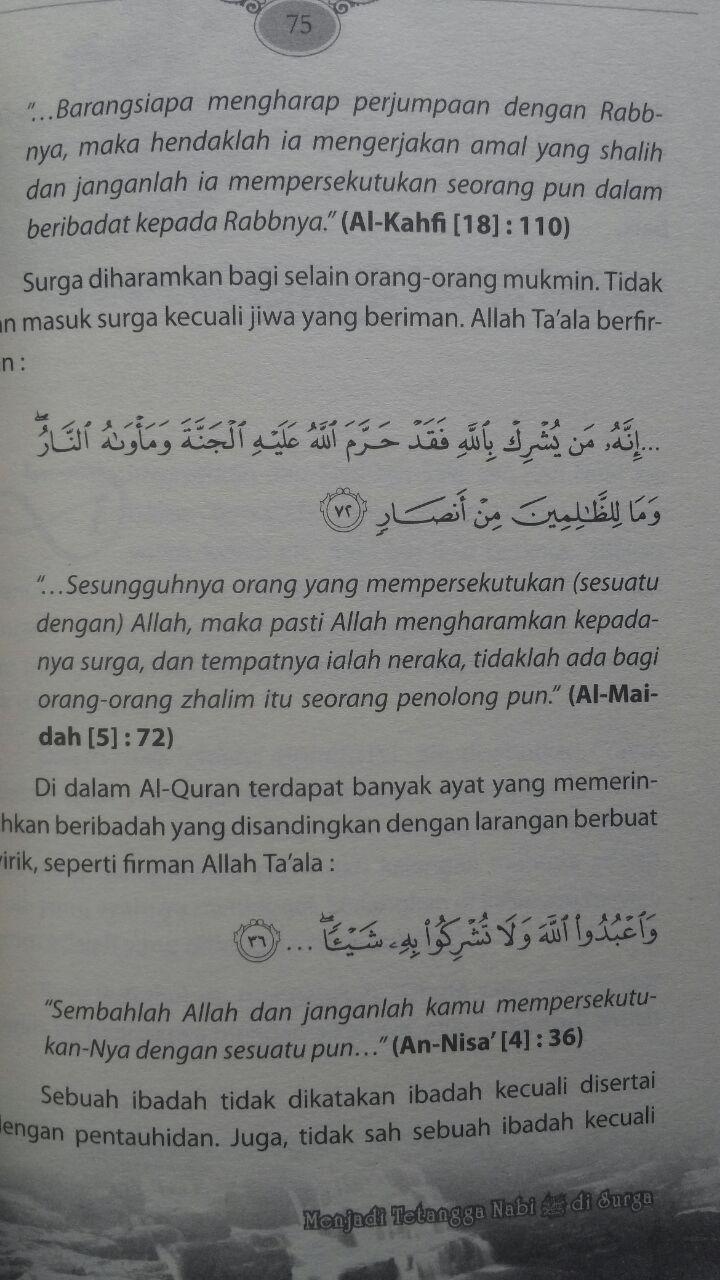 75
"...Barangsiapa mengharap perjumpaan dengan Rabb-
nya, maka hendaklah ia mengerjakan amal yang shalih
dan janganlah ia mempersekutukan seorang pun dalam
beribadat kepada Rabbnya." (Al-Kahfi [18] : 110)
Surga diharamkan bagi selain orang-orang mukmin. Tidak
an masuk surga kecuali jiwa yang beriman. Allah Ta'ala berfir-
n :
...إِنَّهُۥ مَن يُشْرِكْ بِٱللَّهِ فَقَدْ حَرَّمَ ٱللَّهُ عَلَيْهِ ٱلْجَنَّةَ وَمَأْوَىٰهُ ٱلنَّارُ ۖ
وَمَا لِلظَّٰلِمِينَ مِنْ أَنصَارٍ ٧٢
"...Sesungguhnya orang yang mempersekutukan (sesuatu
dengan) Allah, maka pasti Allah mengharamkan kepada-
nya surga, dan tempatnya ialah neraka, tidaklah ada bagi
orang-orang zhalim itu seorang penolong pun." (Al-Mai-
dah [5] : 72)
Di dalam Al-Quran terdapat banyak ayat yang memerin-
hkan beribadah yang disandingkan dengan larangan berbuat
yirik, seperti firman Allah Ta'ala :
وَٱعْبُدُوا۟ ٱللَّهَ وَلَا تُشْرِكُوا۟ بِهِۦ شَيْـًٔا ۖ ... ٣٦
"Sembahlah Allah dan janganlah kamu mempersekutu-
kan-Nya dengan sesuatu pun..." (An-Nisa' [4] : 36)
Sebuah ibadah tidak dikatakan ibadah kecuali disertai
dengan pentauhidan. Juga, tidak sah sebuah ibadah kecuali
Menjadi Tetangga Nabi ﷺ di Surga